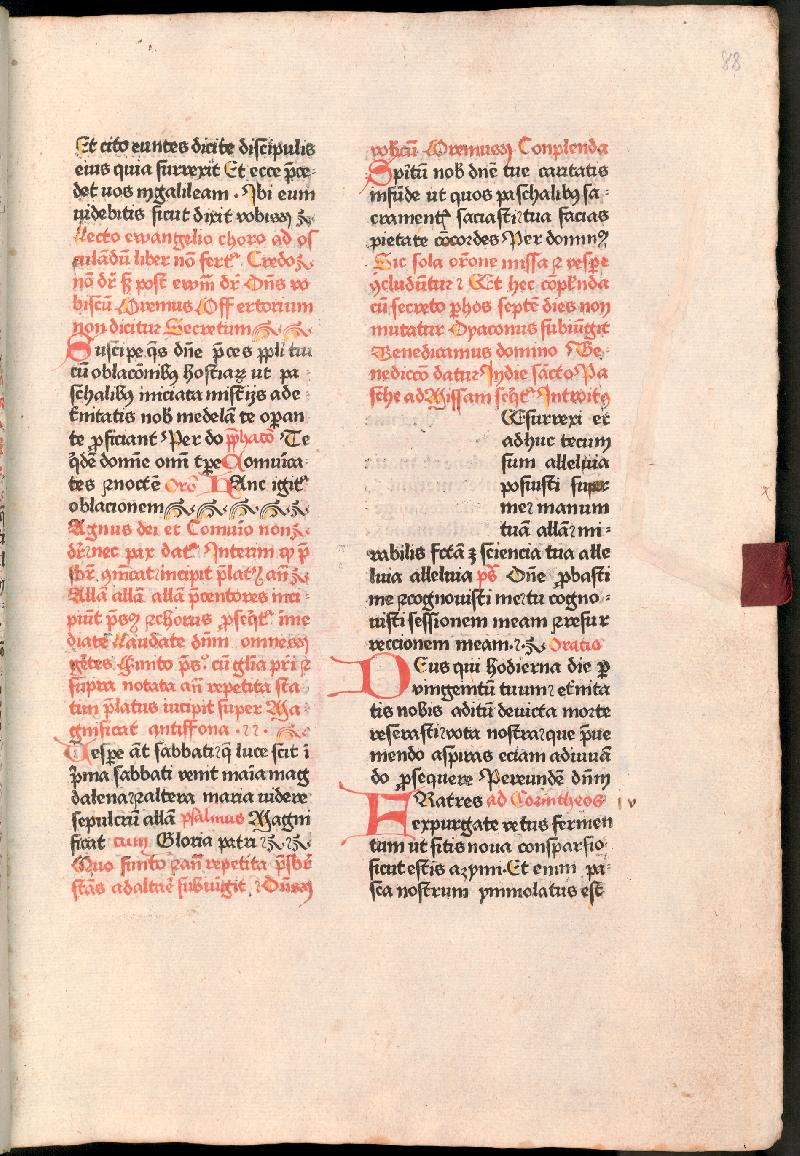 88
Et cito euntes dicite discipulis
eius quia surrexit Et ecce p̄ce-
det uos in galileam . Ibi eum
uidebitis sicut dixit vobis
Lecto ewangelio choro ad os
culādū liber nō fert᷑ . Credo
nō dr̄ sꝫ post ewm̄ dr̄ . Dn̄s vo
biscū Oremus Offertorium
non dicitur Secretum
Suscipe qs̄ dn̄e p̄ces pp̄li tui
cū oblacōnibꝫ hostiaꝝ ut pa
schalibꝫ iniciata mist̄ijs ad e-
t̄nitatis nob̄ medelā te opan
te ꝓficiant Per do p̄phacō Te
qd̄e domīe om̄i tp̄e Comūica
tes ⁊ noctē Orō Hanc igit᷑
oblacionem
Agnus dei et Comūio non
dr̄ nec pax dat᷑ Interim
incipit p̄lat᷑ an̄
Allā allā allā p̄centores inci-
piūt ps̄ ⁊ chorus ꝓseqt᷑ īme
diate Laudate dn̄m omnes
gētes finito ps̄ . cū glīa pr̄i ⁊
supra notata an̄ repetita sta
tim p̄latus incipit super Ma
gnificat antiffona .
Uespe at̄ sabbati q̄ luce scit ī
p̄ma sabbati venit maīa mag
dalena ⁊ altera maria uidere
sepulcrū allā psalmus Magni
ficat cum Gloria patri
Quo finito ⁊ an̄ repetita p̄sbr̄
stās ad altar̄ subiūgit Dn̄us
vobcū Oremus Conplenda
Spitū nob̄ dn̄e tue caritatis
infūde ut quos paschalibꝫ sa-
crament᷑ saciasti tua facias
pietate cōcordes Per dominꝫ
Sic sola or̄one missa ⁊ vespe
ꝯcludūtur Et hec copl̄nda
cū secreto p̄ hos septē dies non
mutatur Dyaconus subiūgit
Benedicamus domino Be
nediccō datur Indie sācto Pa
sche ad Missam seqt᷑ Introitꝰ
Esurrexi et
adhuc tecum
sum alleluia
posuisti super
me manum
tuā allā mi-
rabilis fctā ē sciencia tua alle
luia alleluia ps̄ Dn̄e ꝓbasti
me ⁊ cognouisti me tu cogno-
uisti sessionem meam ⁊ resur
reccionem meam . Oratio
Deus qui hodierna die ꝑ
vnigenitū tuum et̄nita
tis nobis aditū deuicta morte
reserasti vota nostra que p̄ue
niendo aspiras eciam adiuuā
do ꝓsequere Per eundē dn̄m
Fratres ad Corintheos v
expurgate vetus fermen
tum ut sitis noua consparsio
sicut estis azymi . Et enim pa-
sca nostrum ymmolatus est